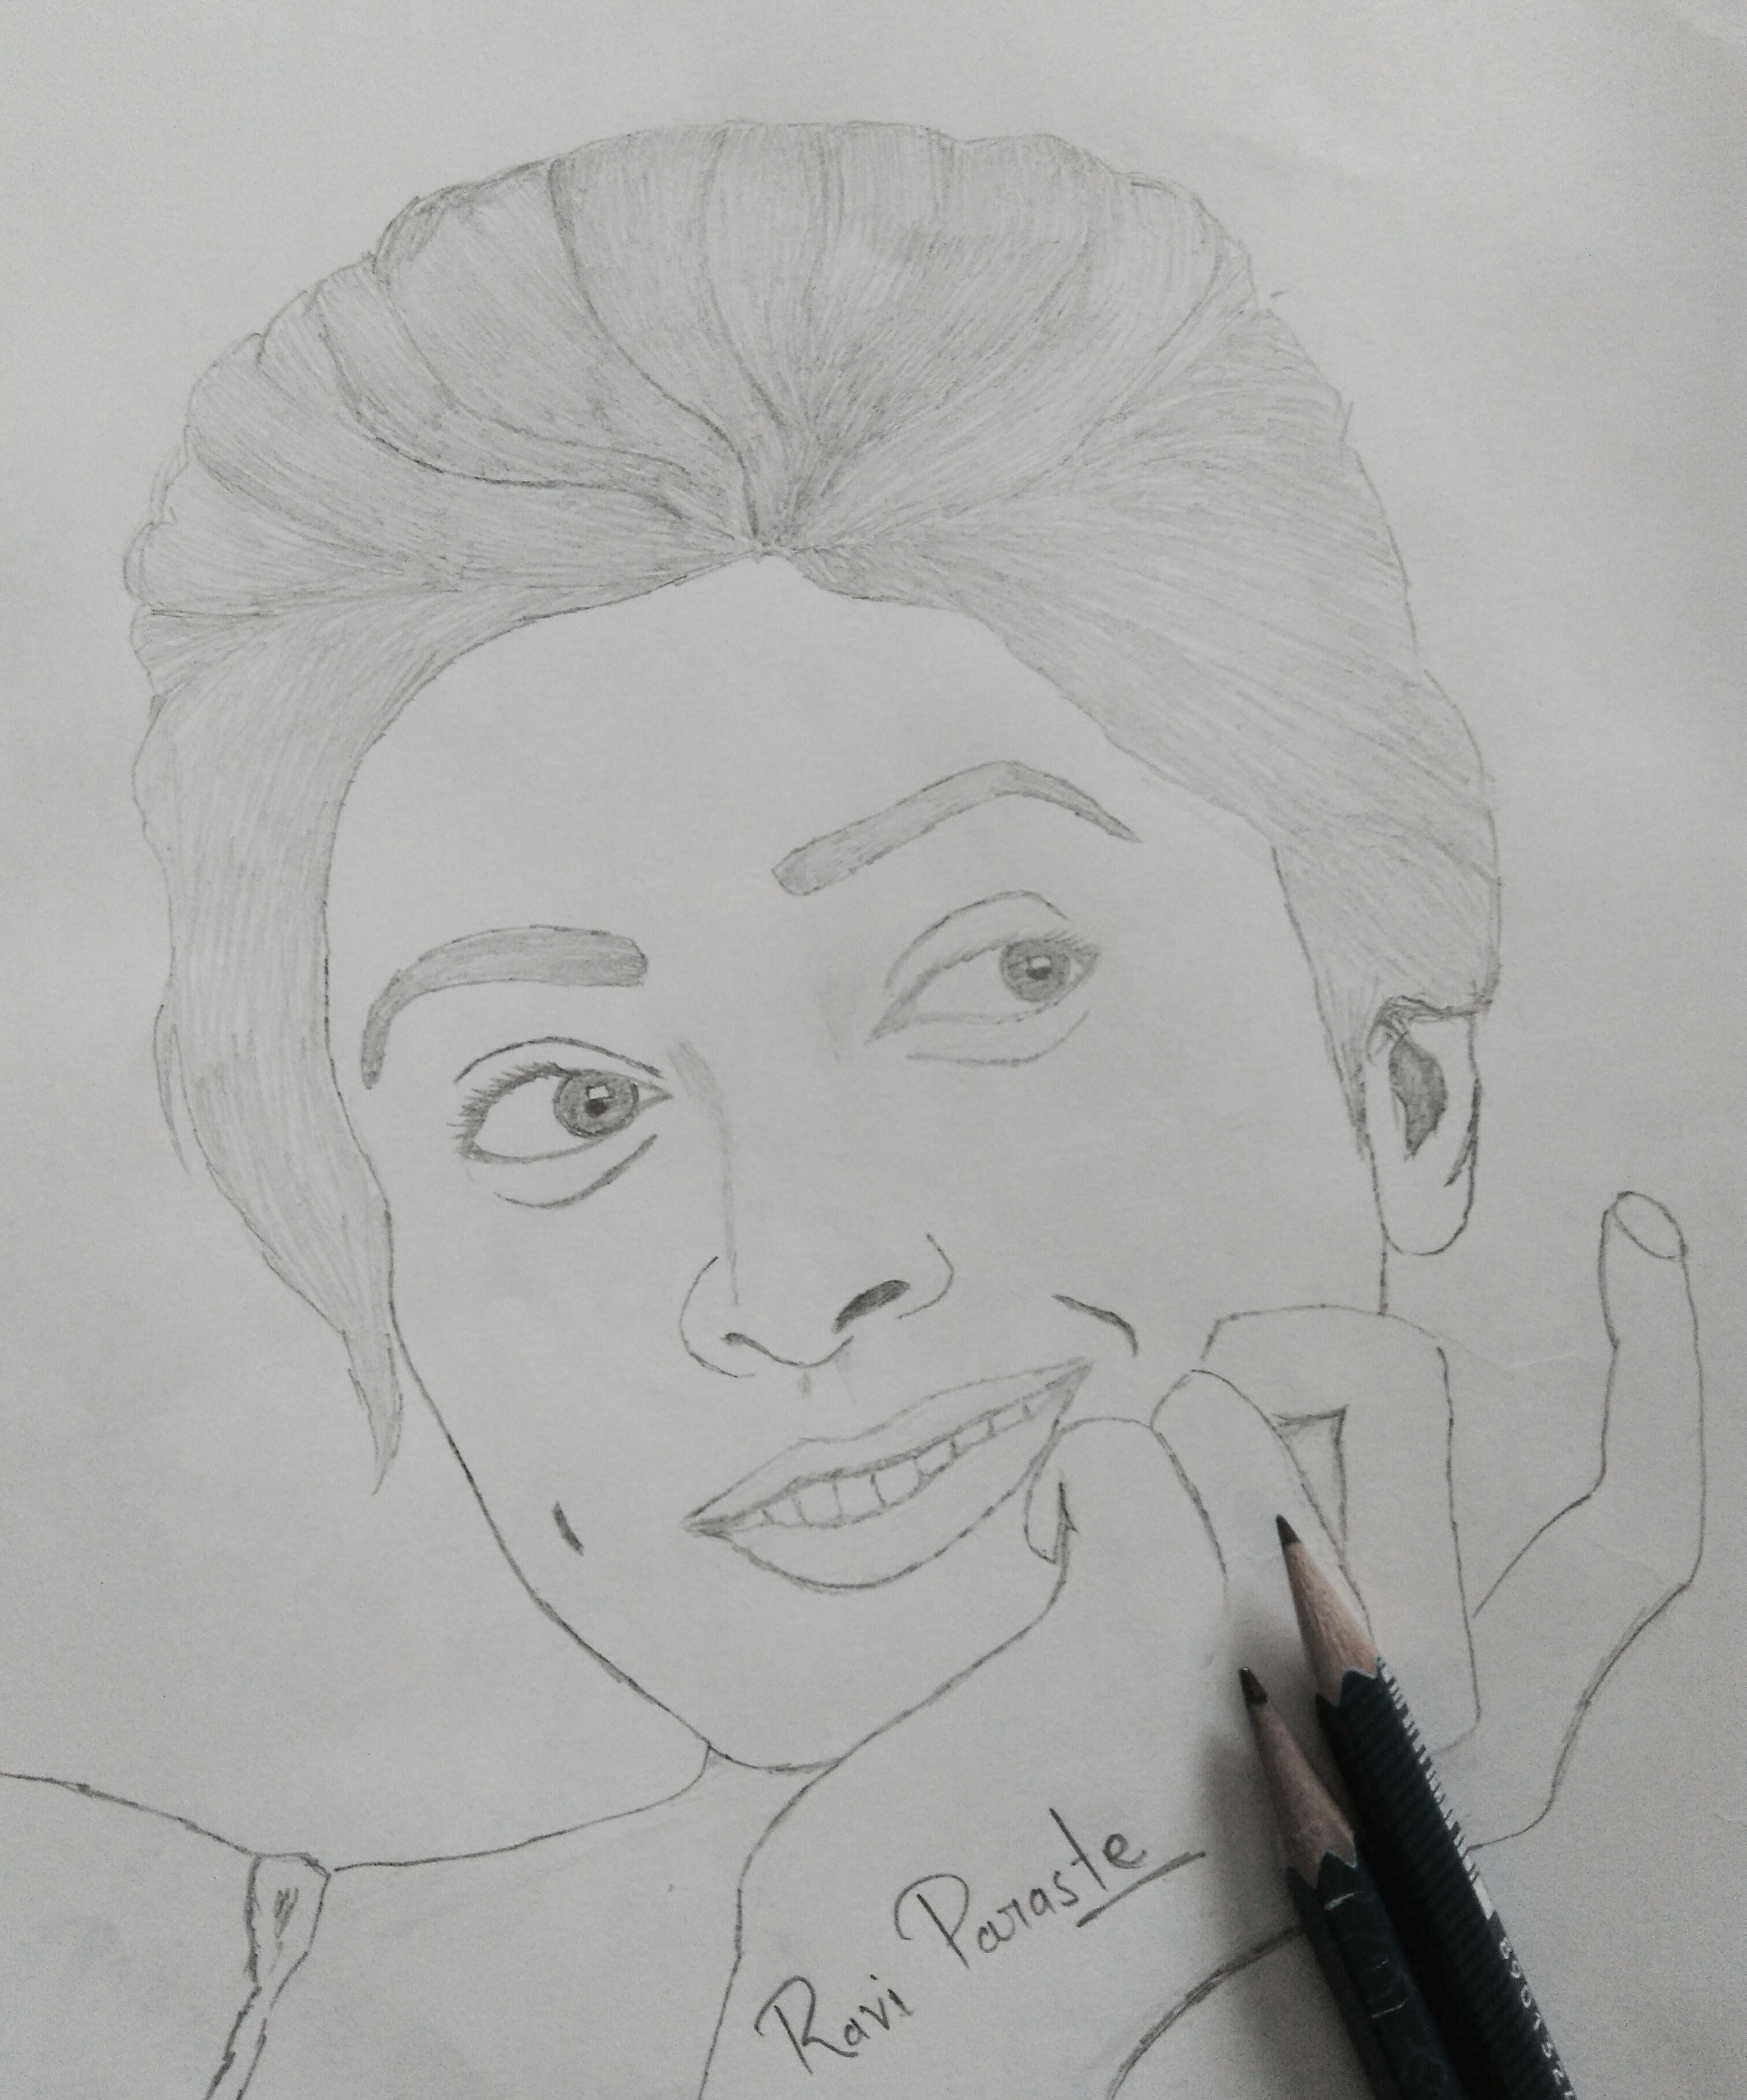 Ravi Paraste